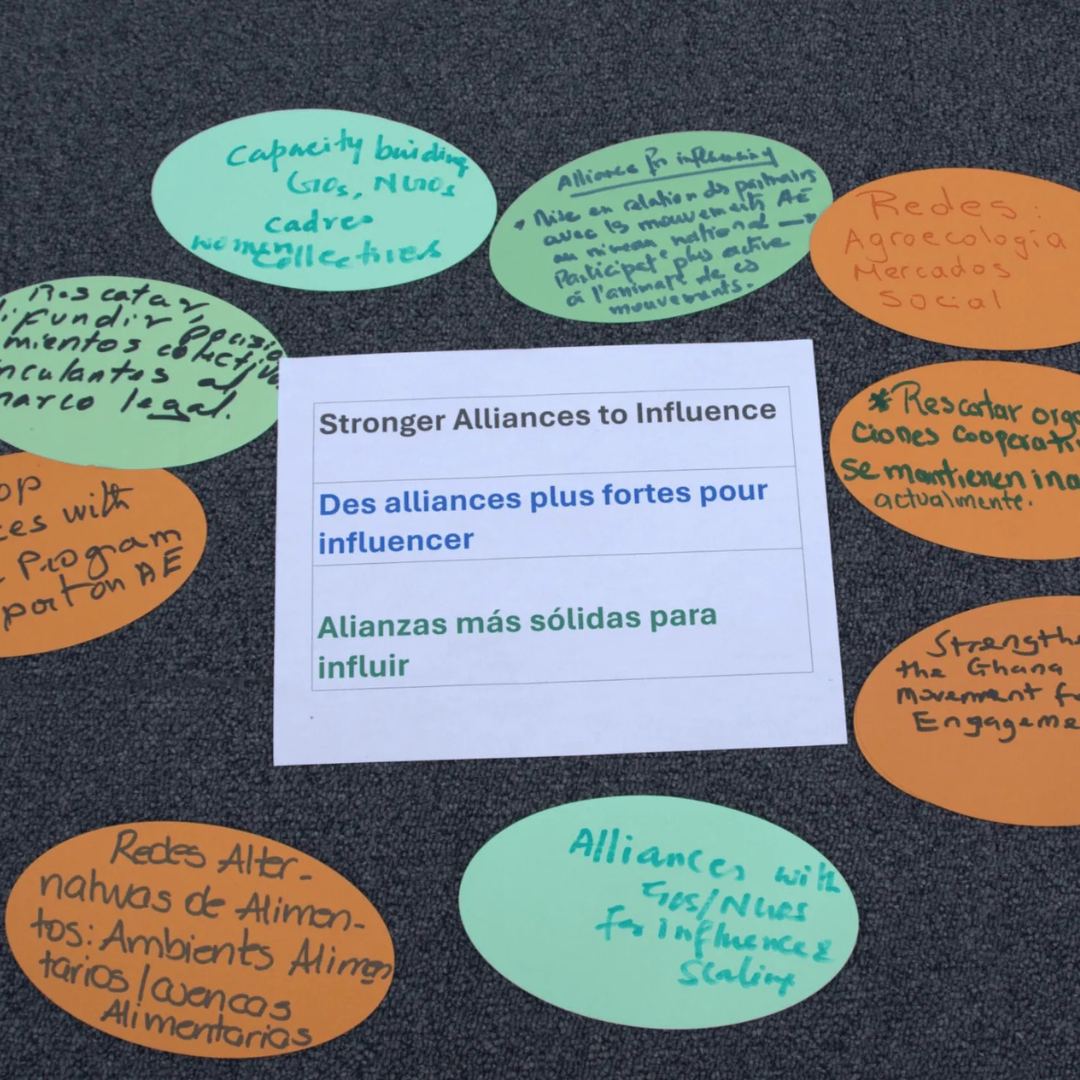 Capacity buiding
GOs, NGOs
cadres
women
collectives
Alliance for influencing
• Mise en relation ds partenaires
avec ls mouvements AE
au niveau national →
Participat° plus active
à l'animat° de cs
mouvements.
Redes:
Agroecología
Mercados
Social
Rescatar,
ifundir
mientos colectiv
nculantes al
marco legal.
*Rescatar orga
ciones cooperati
se mantienen ina
actualmente.
Stronger Alliances to Influence
Des alliances plus fortes pour
influencer
Alianzas más sólidas para
influir
op
ces with
Program
port on AE
Strengthe
the Ghana
Movement f
Engageme
Redes Alter-
nativas de Alimen-
tos: Ambients Alimen
tarios/cuencas
Alimentarias
Alliances with
GOs/NGOs
for Influence &
Scaling